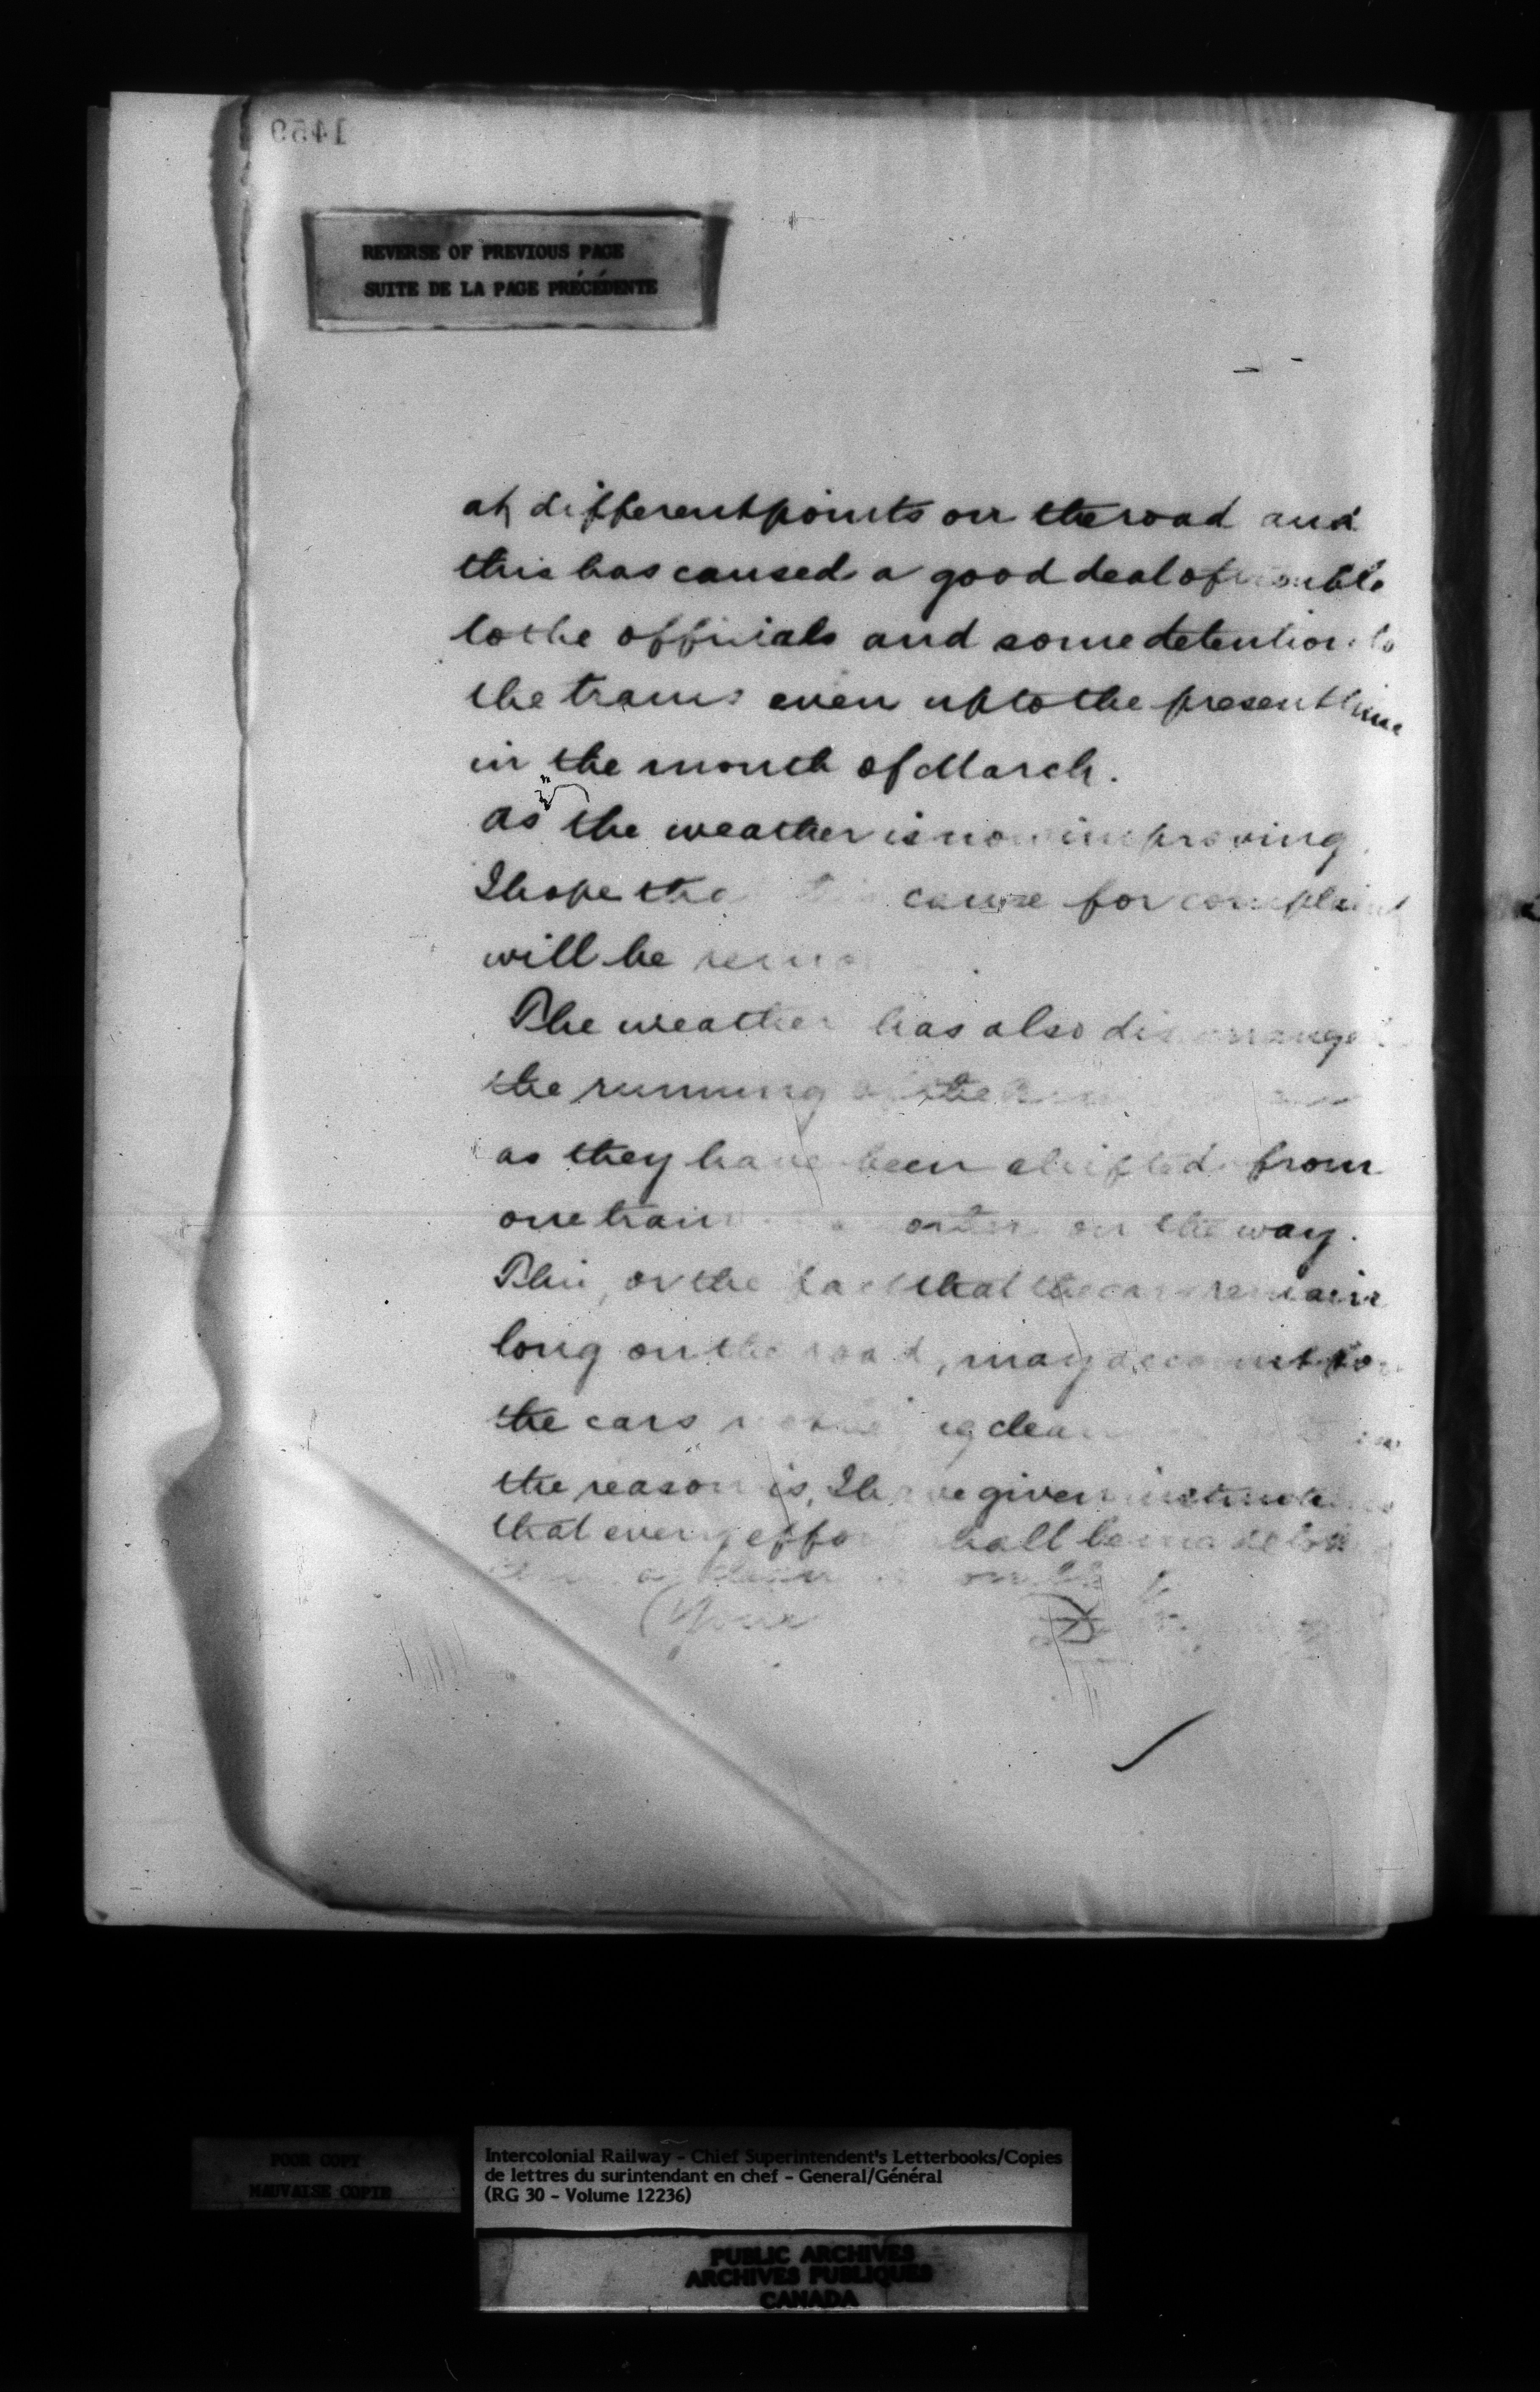 1459
REVERSE OF PREVIOUS PAGE
SUITE DE LA PAGE PRÉCÉDENTE
at different points on the road and
this has caused a good deal of trouble
to the officials and some detention to
the trains even up to the present time
in the month of March.
As the weather is now improving
I hope the cause for complaint
will be
The weather has also disarranged
the running of the
as they have been shifted from
one train on the way.
This, or the fact that the cars remain
long on the road, may account for
the cars
the reason is, I have given instructions
that every effort shall be made to
Your
POOR COPY
MAUVAISE COPIE
Intercolonial Railway - Chief Superintendent's Letterbooks/Copies
de lettres du surintendant en chef - General/Général
(RG 30 - Volume 12236)
PUBLIC ARCHIVES
ARCHIVES PUBLIQUES
CANADA